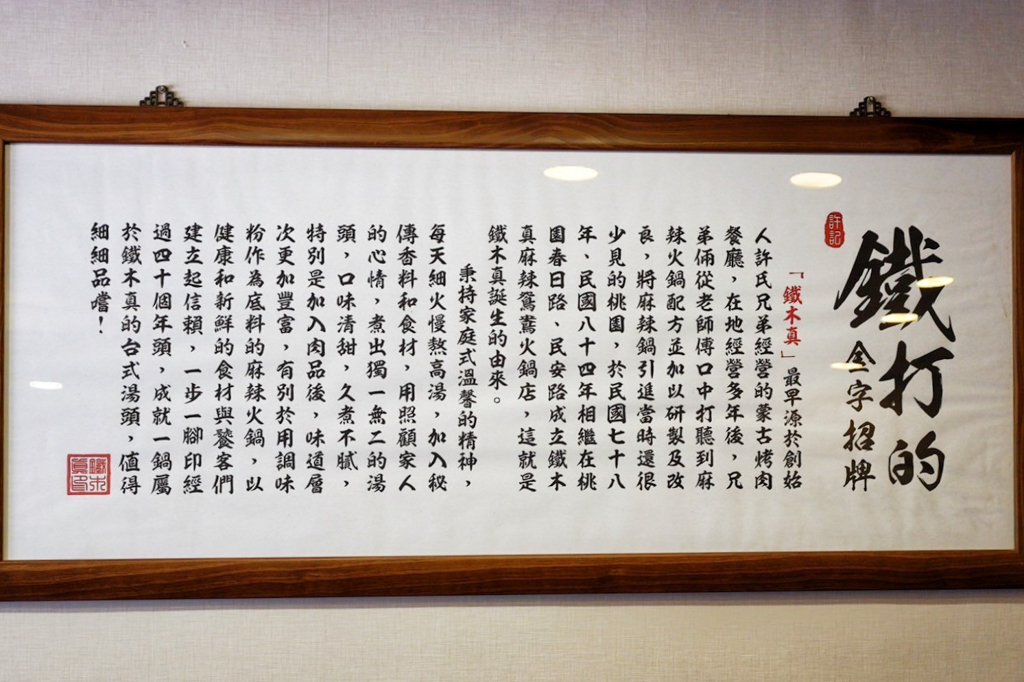 鐵打的
金字招牌
許記
「鐵木真」最早源於創始
人許氏兄弟經營的蒙古烤肉
餐廳，在地經營多年後，兄
弟倆從老師傅口中打聽到麻
辣火鍋配方並加以研製及改
良，將麻辣鍋引進當時還很
少見的桃園，於民國七十八
年、民國八十四年相繼在桃
園春日路、民安路成立鐵木
真麻辣鴛鴦火鍋店，這就是
鐵木真誕生的由來。
秉持家庭式溫馨的精神，
每天細火慢熬高湯，加入秘
傳香料和食材，用照顧家人
的心情，煮出獨一無二的湯
頭，口味清甜，久煮不膩，
特別是加入肉品後，味道層
次更加豐富，有別於用調味
粉作為底料的麻辣火鍋，以
健康和新鮮的食材與饕客們
建立起信賴，一步一腳印經
過四十個年頭，成就一鍋屬
於鐵木真的台式湯頭，值得
細細品嚐！